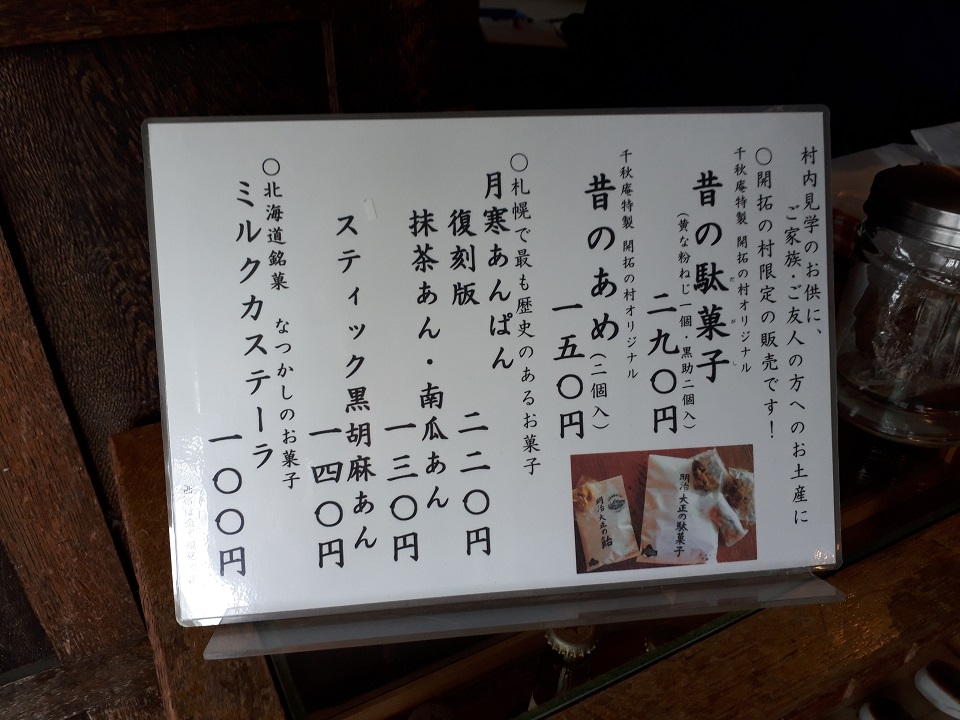 村内見学のお供に、
ご家族・ご友人の方へのお土産に
〇開拓の村限定の販売です！
千秋庵特製 開拓の村オリジナル
昔の駄菓子
だがし
（黄な粉ねじ一個・黒助二個入）
二九〇円
千秋庵特製 開拓の村オリジナル
昔のあめ（二個入）
一五〇円
〇札幌で最も歴史のあるお菓子
月寒あんぱん
復刻版
二二〇円
抹茶あん・南瓜あん
一三〇円
スティック黒胡麻あん
一四〇円
〇北海道銘菓 なつかしのお菓子
ミルクカステーラ
一〇〇円
明治 大正の飴
明治 大正の駄菓子